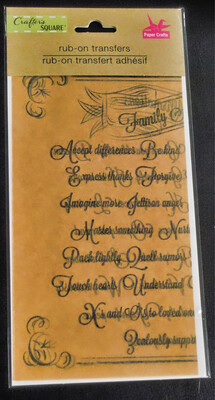 Crafter's
SQUARE
Paper Crafts
rub-on transfers
rub-on transfert adhésif
Family
Accept differences Be kind
Express thanks Forgive
Imagine more Jettison anger
Master something
Pack lightly Quell rumors
Touch hearts Understand
X's and O's to loved
Zealously suppo